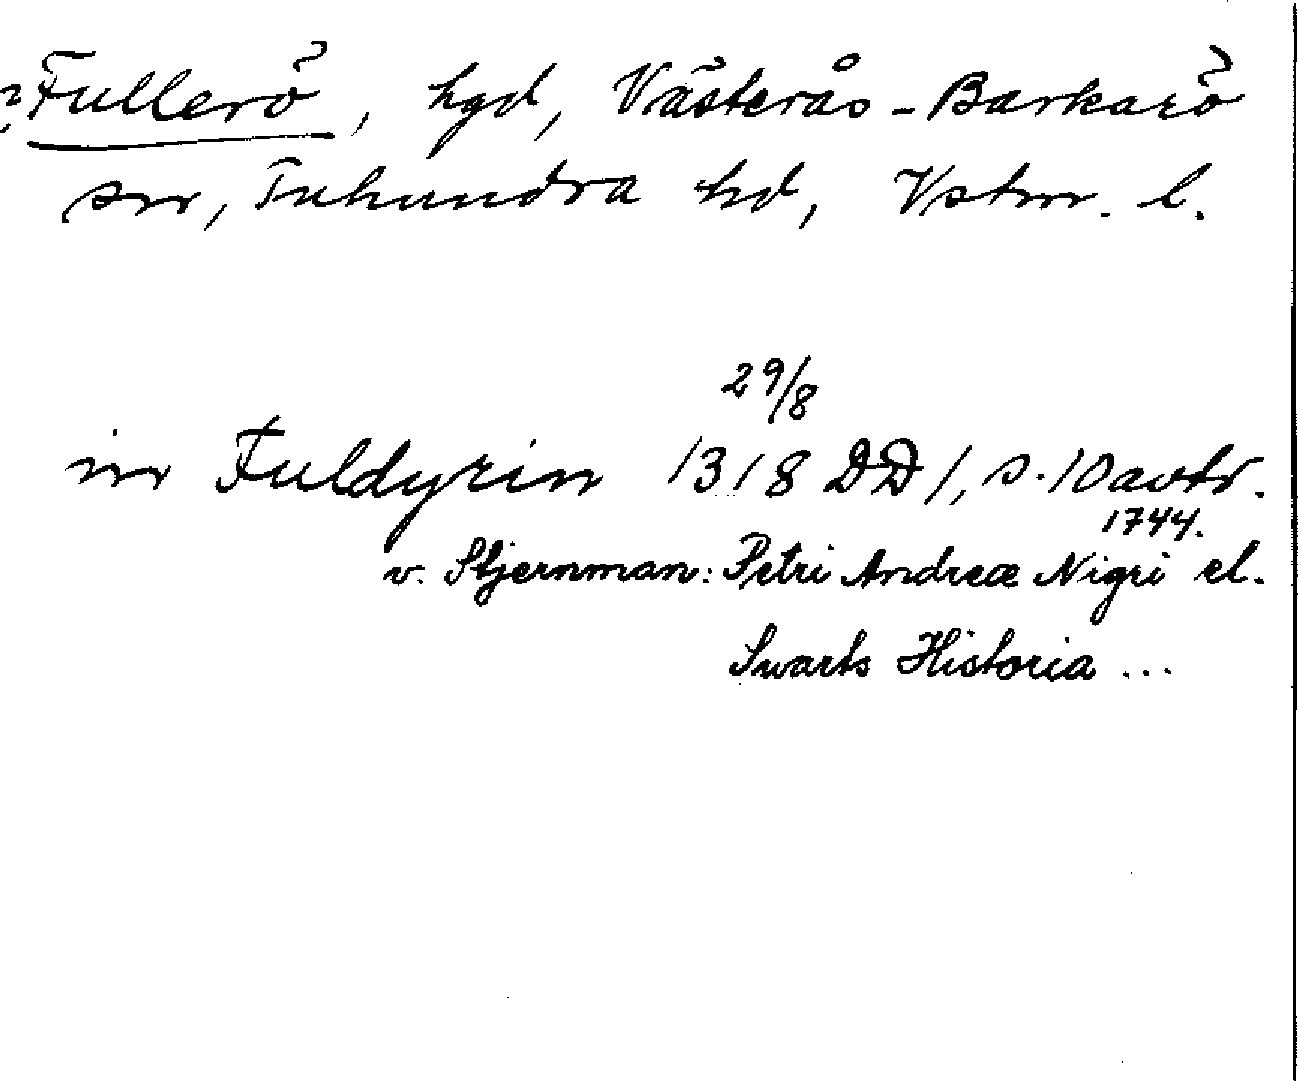 ? Fullerö, hgd, Västerås-Barkarö
sn, Tuhundra hd, Vstm. l.
29/8
in Fuldyrin 1318 DD 1, s. 10 avtr.
1744.
v. Stjernman: Petri Andreæ Nigri el.
Swarts Historia ...